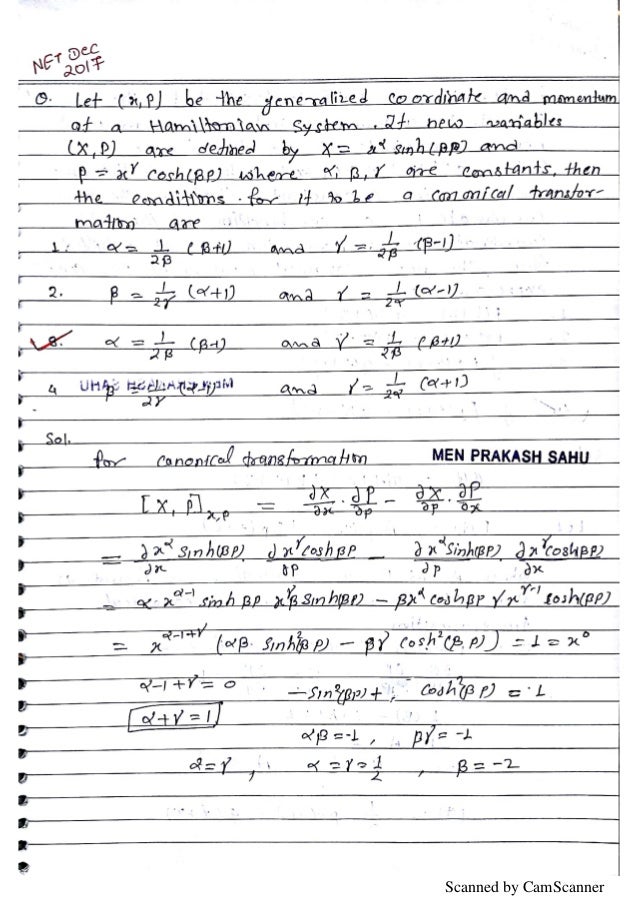 NET Dec
2017
Q. Let (x,p) be the generalized coordinate and momentum
of a Hamiltonian System. If new variables
(X,P) are defined by X = x^α sinh(βp) and
P = x^γ cosh(βp) where α, β, γ are constants, then
the conditions for it to be a canonical transfor-
mation are
1. α = 1/2β (β+1) and γ = 1/2β (β-1)
2. β = 1/2γ (α+1) and γ = 1/2α (α-1)
3. α = 1/2β (β-1) and γ = 1/2β (β+1)
4 and γ = 1/2α (α+1)
Sol.
for canonical transformation MEN PRAKASH SAHU
[X, P]x,p = ∂X/∂x · ∂P/∂p - ∂X/∂p · ∂P/∂x
= ∂x^α sinh(βp)/∂x · ∂x^γ cosh βp/∂p - ∂x^α sinh(βp)/∂p · ∂x^γ cosh(βp)/∂x
= α·x^α-1 sinh βp x^γ β sinh(βp) - βx^α cosh βp γ x^γ-1 cosh(βp)
= x^α-1+γ (αβ. sinh²(βp) - βγ cosh²(βp)) = 1 = x⁰
α-1+γ = 0 -sin²(βp) + cosh²(βp) = 1
α+γ = 1
αβ = -1 , βγ = -1
α = γ , ∴ α = γ = 1/2 , β = -2
Scanned by CamScanner